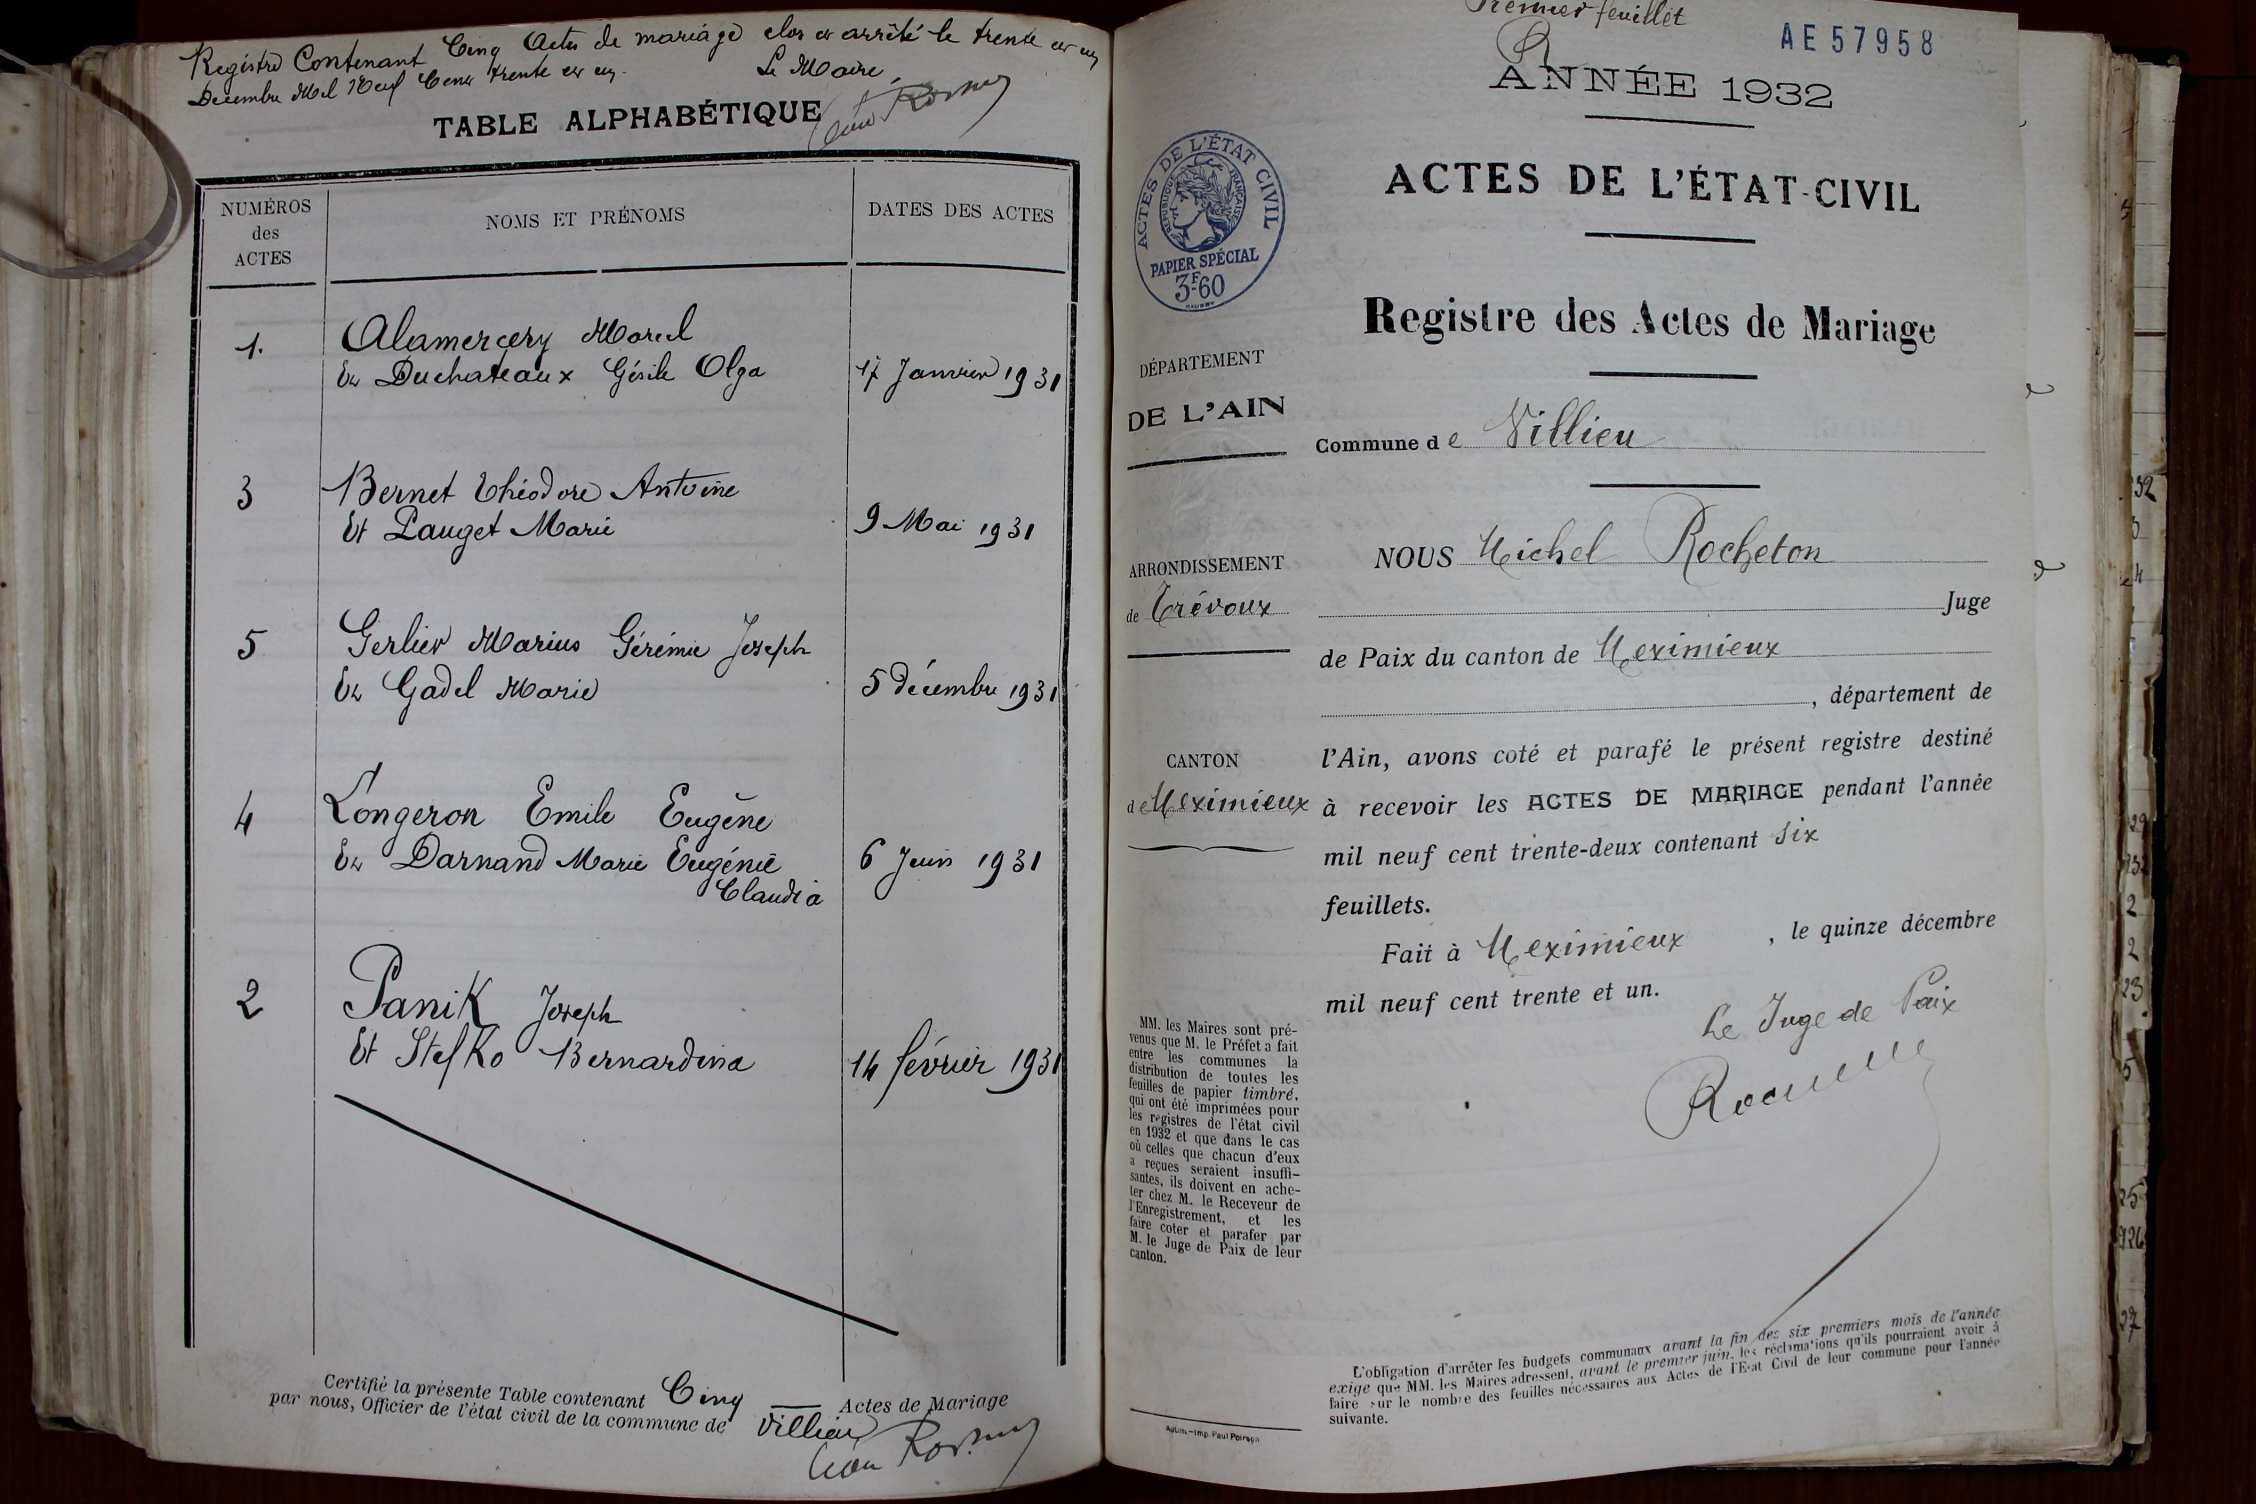 Registre Contenant Cinq Actes de mariage clos et arrêté le trente et un
Décembre Mil Neuf Cent trente et un.
Le Maire
TABLE ALPHABÉTIQUE
NUMÉROS
des
ACTES
NOMS ET PRÉNOMS
DATES DES ACTES
1. Alamercery Marcel
Et Duchateaux Gésile Olga 17 Janvier 1931
3 Bernet Théodore Antoine
Et Pauget Marie 9 Mai 1931
5 Gerlier Marius Gérémie Joseph
Et Gadel Marie 5 décembre 1931
4 Longeron Emile Eugène
Et Darnand Marie Eugénie 6 Juin 1931
Claudia
2 Panik Joseph
Et Stefko Bernardina 14 février 1931
Certifié la présente Table contenant Cinq Actes de Mariage
par nous, Officier de l'état civil de la commune de Villieu
Premier feuillet
AE 57958
ANNÉE 1932
ACTES DE L'ÉTAT CIVIL
RÉPUBLIQUE FRANÇAISE
PAPIER SPÉCIAL
3F.60
ACTES DE L'ÉTAT-CIVIL
Registre des Actes de Mariage
DÉPARTEMENT
DE L'AIN
Commune de Villieu
ARRONDISSEMENT
de Trévoux
CANTON
de Meximieux
NOUS Michel Rocheton
Juge
de Paix du canton de Meximieux
, département de
l'Ain, avons coté et parafé le présent registre destiné
à recevoir les ACTES DE MARIAGE pendant l'année
mil neuf cent trente-deux contenant six
feuillets.
Fait à Meximieux , le quinze décembre
mil neuf cent trente et un.
Le Juge de Paix
MM. les Maires sont pré-
venus que M. le Préfet a fait
entre les communes la
distribution de toutes les
feuilles de papier timbré,
qui ont été imprimées pour
les registres de l'état civil
en 1932 et que dans le cas
où celles que chacun d'eux
a reçues seraient insuffi-
santes, ils doivent en ache-
ter chez M. le Receveur de
l'Enregistrement, et les
faire coter et parafer par
M. le Juge de Paix de leur
canton.
L'obligation d'arrêter les budgets communaux avant la fin des six premiers mois de l'année
exige que MM. les Maires adressent, avant le premier juin, les réclamations qu'ils pourraient avoir à
faire sur le nombre des feuilles nécessaires aux Actes de l'Etat Civil de leur commune pour l'année
suivante.